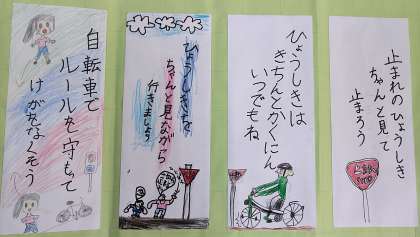 止まれのひょうしき
ちゃんと見て
止まろう
止まれ
STOP
ひょうしきは
きちんとかくにん
いつでもね
ひょうしきを
ちゃんと見ながら
行きましょう
自転車で
ルールを守もって
けがをなくそう